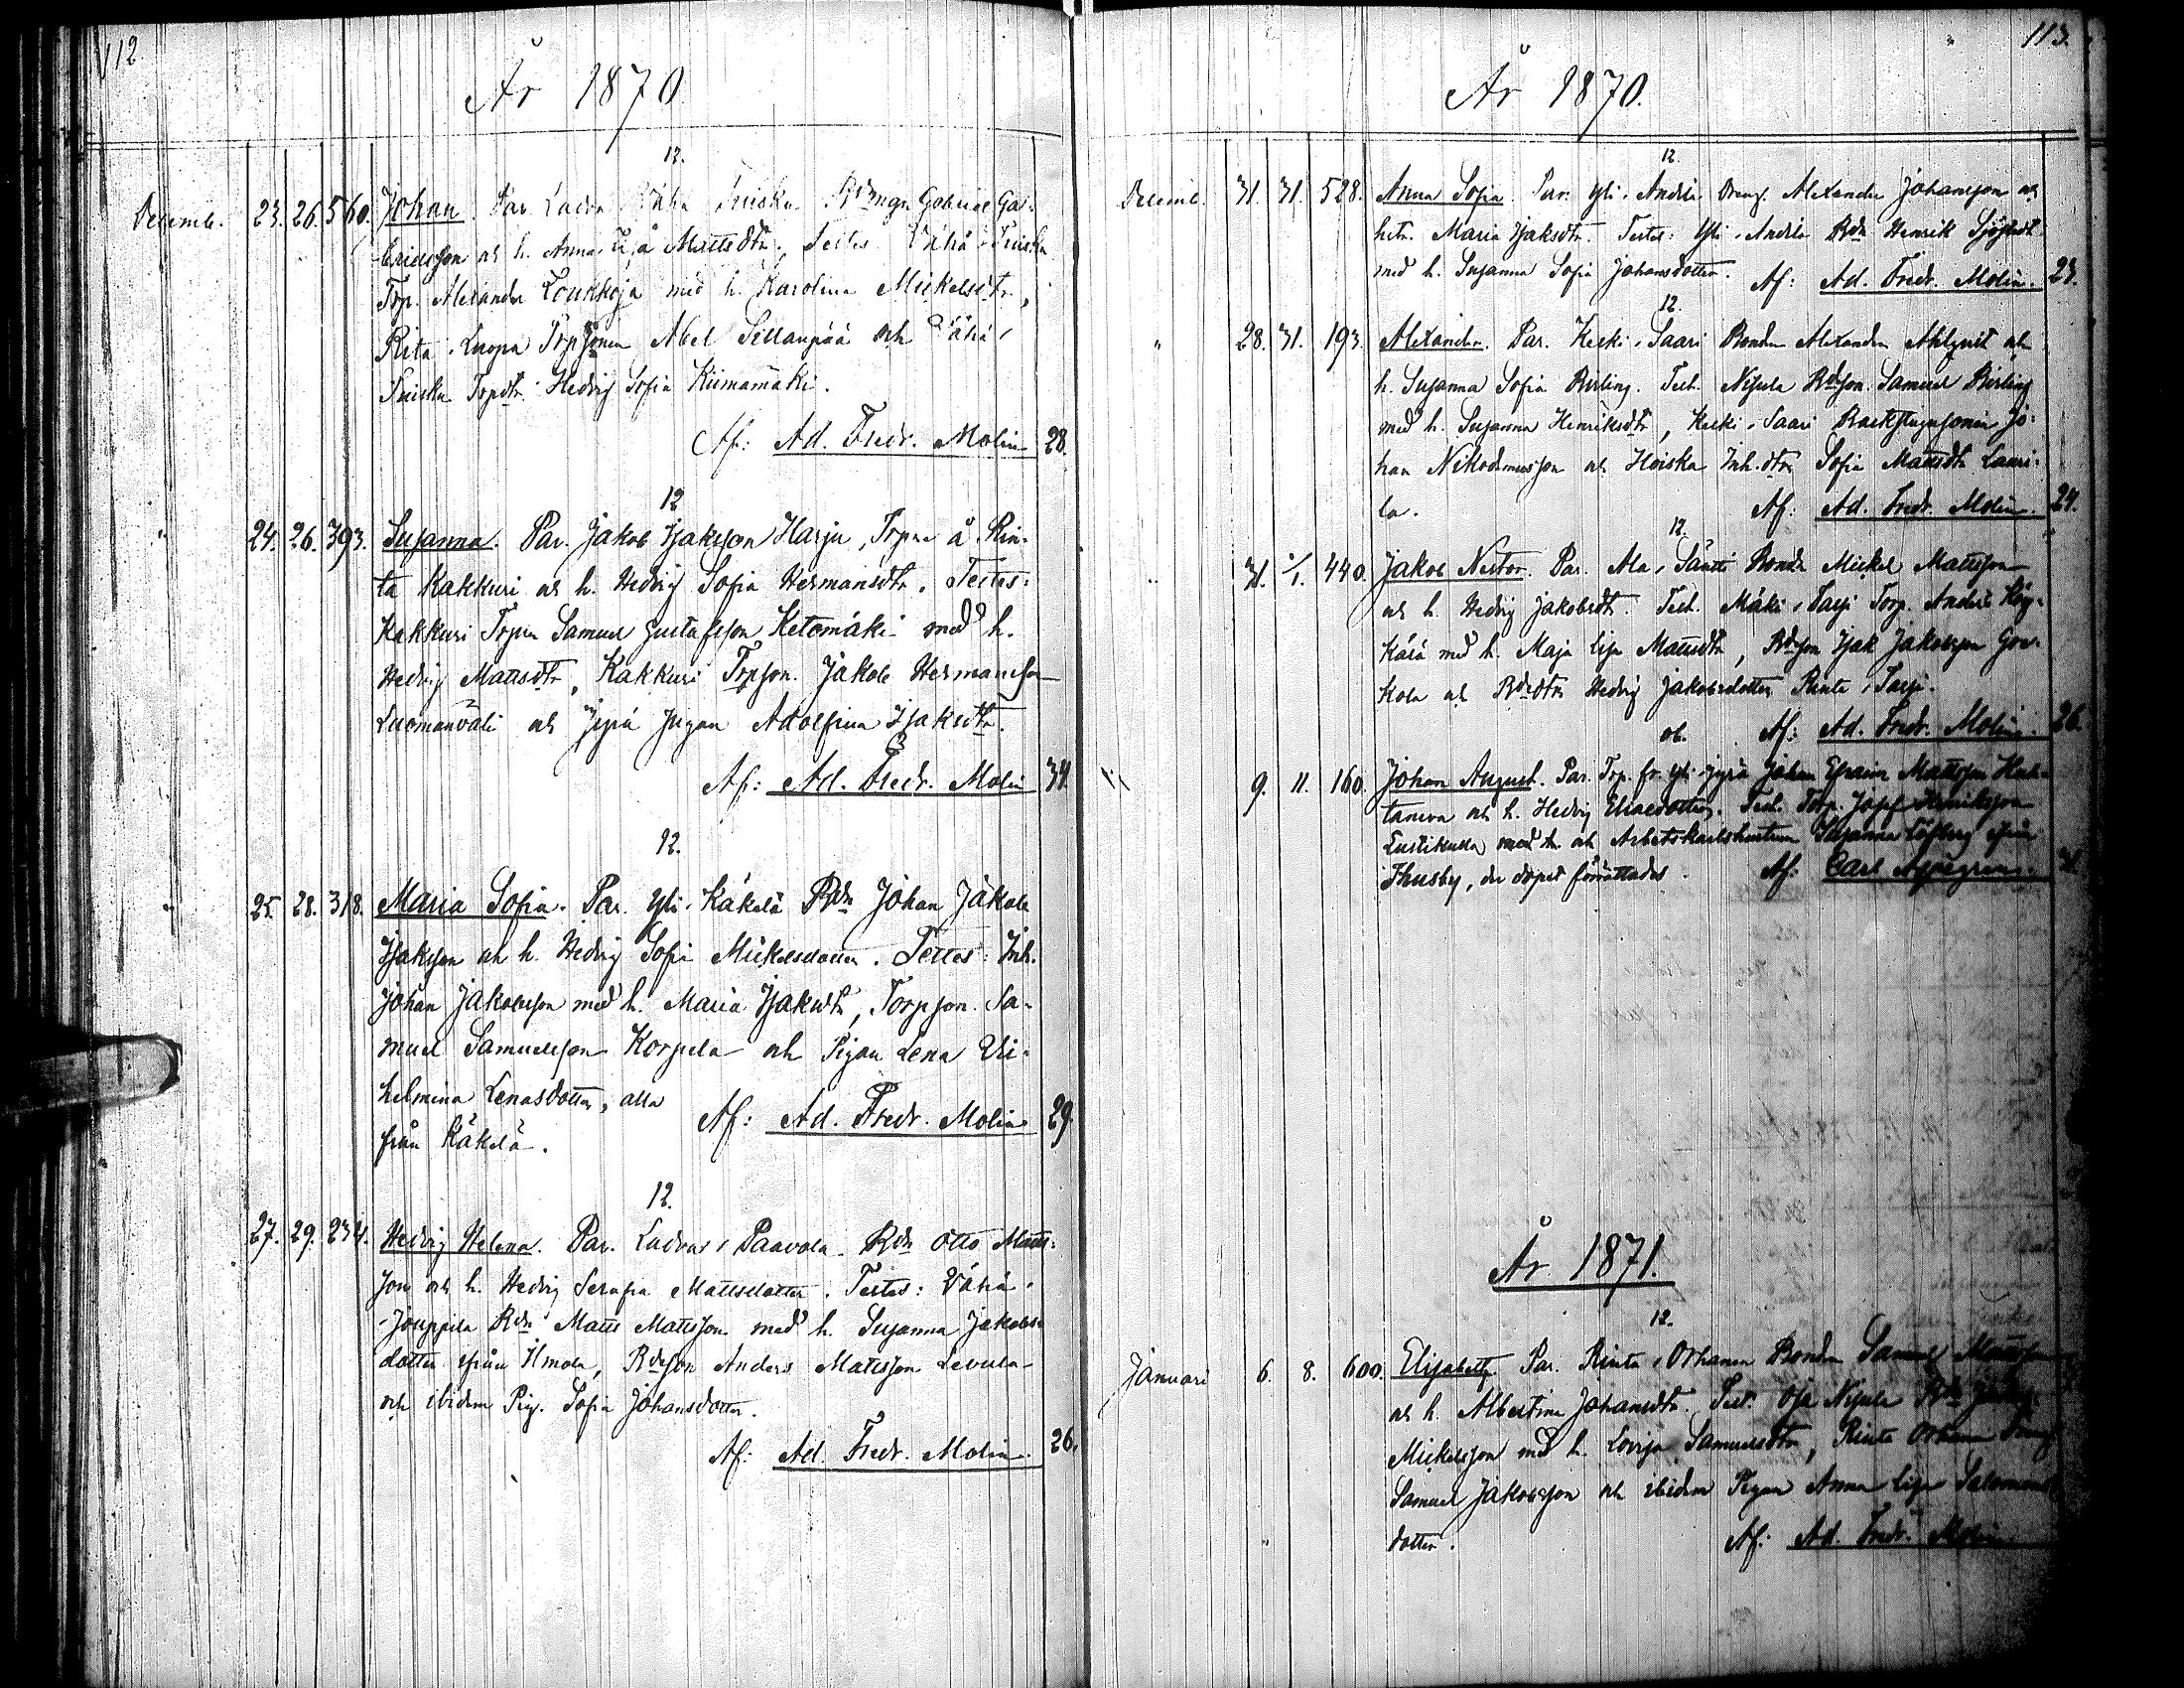 112
År 1870
12.
Decemb. 23. 26. 560. Johan. Par. Ladva Vähä Fiiska Bdmgn Gabriel Ga-
brielsson och h. Anna Mattsdtr. Testes Vähä-Fiiska
Trp. Alexander Loukkoja med h. Karolina Mickelsdtr,
Rita-Luopa Trpsonen Abel Sillanpää och Vähä-
Fiiska Trpdtr Hedvig Sofia Kiimamäki.
Af: Ad. Fredr. Molin 28.
12
" 24. 26. 393. Susanna. Par. Jakob Isaksson Harju, Trpre å Rin-
ta Kakkuri och h. Hedvig Sofia Hermansdtr. Testes:
Kakkuri Trpre Samuel Gustafsson Ketomäki med h.
Hedvig Mattsdtr, Kakkuri Trpson. Jakob Hermansson
Luomanväli och Jyrä Pigan Adolfina Isaksdtr.
Af: Ad. Fredr. Molin 34.
12.
" 25. 28. 318. Maria Sofia. Par. Yli-Käkelä Bdn Johan Jakob
Isaksson och h. Hedvig Sofia Mickelsdotter. Testes: Inh.
Johan Jakobsson med h. Maria Isaksdtr, Torpson. Sa-
muel Samuelsson Korpela och Pigan Lena Vil-
helmina Lenasdotter, alla
från Käkelä. Af: Ad. Fredr. Molin 29.
12.
27. 29. 234. Hedvig Helena. Par. Ladvas, Paavola Bdn Otto Matts-
son och h. Hedvig Serafia Mattsdotter. Testes: Vähä-
Jouppila Bdn Matts Mattsson med h. Susanna Jakobs-
dotter från Ilmola, Bdeson Anders Mattsson Levula
och ibidem Pig. Sofia Johansdotter.
Af: Ad. Fredr. Molin. 26.
113.
År 1870.
12.
Decemb. 31. 31. 528. Anna Sofia. Par. Yli-Andila Dreng. Alexander Johansson och
hstr. Maria Isaksdtr. Testes: Yli-Andila Bdn Henrik Sjöstedt
med h. Susanna Sofia Johansdotter. Af: Ad. Fredr. Molin. 23.
12.
" 28. 31. 193. Alexander. Par. Keski-Saari Bonden Alexander Ahlqvist och
h. Susanna Sofia Birling. Test. Nisula Bdeson. Samuel Birling
med h. Susanna Henriksdtr, Keski-Saari Backstugusonen Jo-
han Nikodemusson och Hoiska Inh.dtr Sofia Mattsdtr Lauri-
la. Af: Ad. Fredr. Molin. 24.
12.
" 31. 1/1. 440. Jakob Nestor. Par. Ala-Säntti Bonden Mickel Mattsson
och h. Hedvig Jakobsdtr. Test. Mäki-Passi Torp. Anders
kälä med h. Maja Lisa Mattsdtr, Bdeson Isak Jakobsson
kola och Bdedtr Hedvig Jakobsdotter Rinta-Passi.
Af: Ad. Fredr. Molin. 26.
ob.
9. 11. 160. Johan August. Par. Trp. fr. Yli-Jyrä Johan Efraim Mattsson
taneva och h. Hedvig Eliaedotter. Test. Torp. Josef Henriksson
Lustikulla med h. och Arbetskarlshustrun Susanna Löfberg ifrån
Thusby, der dopet förrättades. Af: Carl 31
År 1871.
12.
Januari 6. 8. 600. Elisabeth Par. Rinta-Orhanen Bonden Samuel Mattsson
och h. Albertina Johansdtr. Test. Oja Nisula Bdn
Mickelsson med h. Lovisa Samuelsdtr, Rinta Orhanen Dreng
Samuel Jakobsson och ibidem Pigan Anna Lisa Salomons
dotter. Af: Ad. Fredr. Molin.